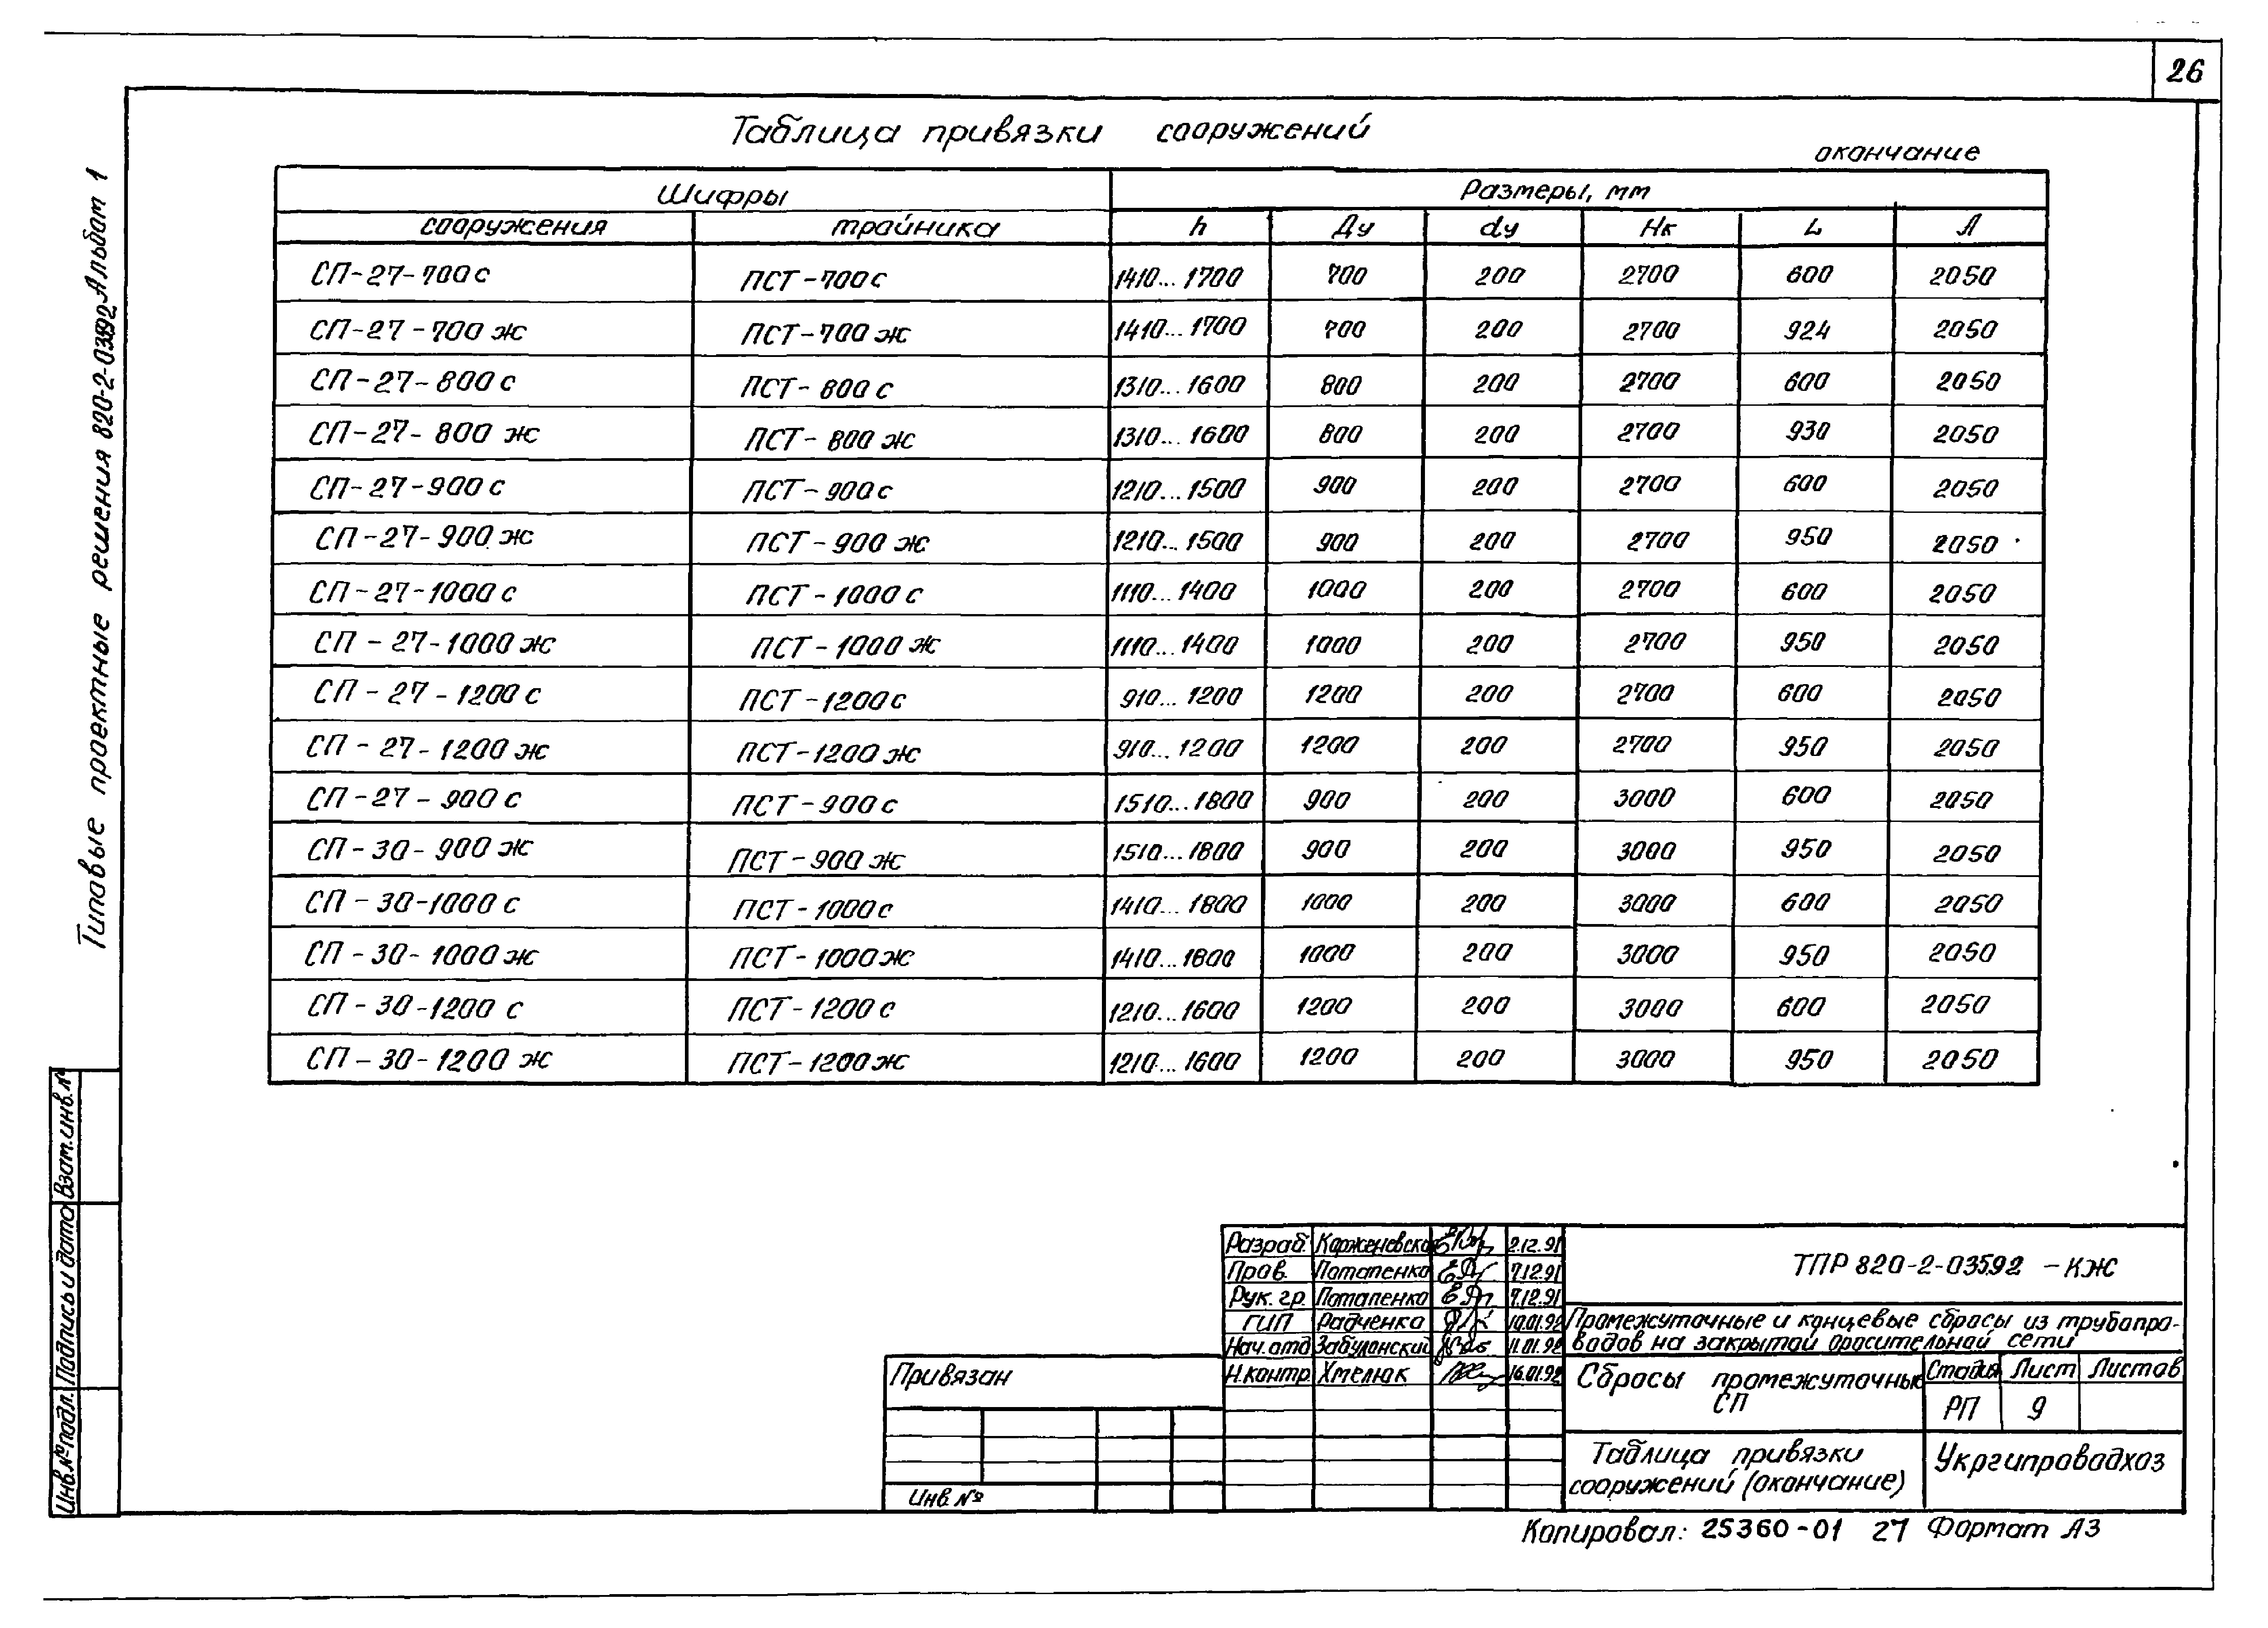 26
Таблица привязки сооружений
окончание
Шифры Размеры, мм
сооружения тройника h Ду dу Нк L А
СП-27-700с ПСТ-700с 1410...1700 700 200 2700 600 2050
СП-27-700ж ПСТ-700ж 1410...1700 700 200 2700 924 2050
СП-27-800с ПСТ-800с 1310...1600 800 200 2700 600 2050
СП-27-800ж ПСТ-800ж 1310...1600 800 200 2700 930 2050
СП-27-900с ПСТ-900с 1210...1500 900 200 2700 600 2050
СП-27-900ж ПСТ-900ж 1210...1500 900 200 2700 950 2050
СП-27-1000с ПСТ-1000с 1110...1400 1000 200 2700 600 2050
СП-27-1000ж ПСТ-1000ж 1110...1400 1000 200 2700 950 2050
СП-27-1200с ПСТ-1200с 910...1200 1200 200 2700 600 2050
СП-27-1200ж ПСТ-1200ж 910...1200 1200 200 2700 950 2050
СП-27-900с ПСТ-900с 1510...1800 900 200 3000 600 2050
СП-30-900ж ПСТ-900ж 1510...1800 900 200 3000 950 2050
СП-30-1000с ПСТ-1000с 1410...1800 1000 200 3000 600 2050
СП-30-1000ж ПСТ-1000ж 1410...1800 1000 200 3000 950 2050
СП-30-1200с ПСТ-1200с 1210...1600 1200 200 3000 600 2050
СП-30-1200ж ПСТ-1200ж 1210...1600 1200 200 3000 950 2050
Типовые проектные решения 820-2-03592 Альбом 1
Взам.инв.№
Подпись и дата
Инв.№ подл.
Разраб. 2.12.91
Пров. Потапенко 7.12.91
Рук. гр. Потапенко 7.12.91
ГИП Радченко 10.01.92
Нач. отд 11.01.92
Н.контр. Хмелюк 16.01.92
Привязан
Инв.№
ТПР 820-2-03592 -КЖ
Промежуточные и концевые сбросы из трубопро-
водов на закрытой оросительной сети
Сбросы промежуточные
СП
Стадия Лист Листов
РП 9
Таблица привязки
сооружений (окончание)
Укргипроводхоз
Копировал: 25360-01 27 Формат А3